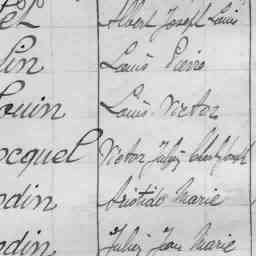 el Albert Joseph Louis
lin Louis Pierre
ouin Louis Victor
ocquel Victor Jules
odin Aristide Marie
odin Jules Jean Marie